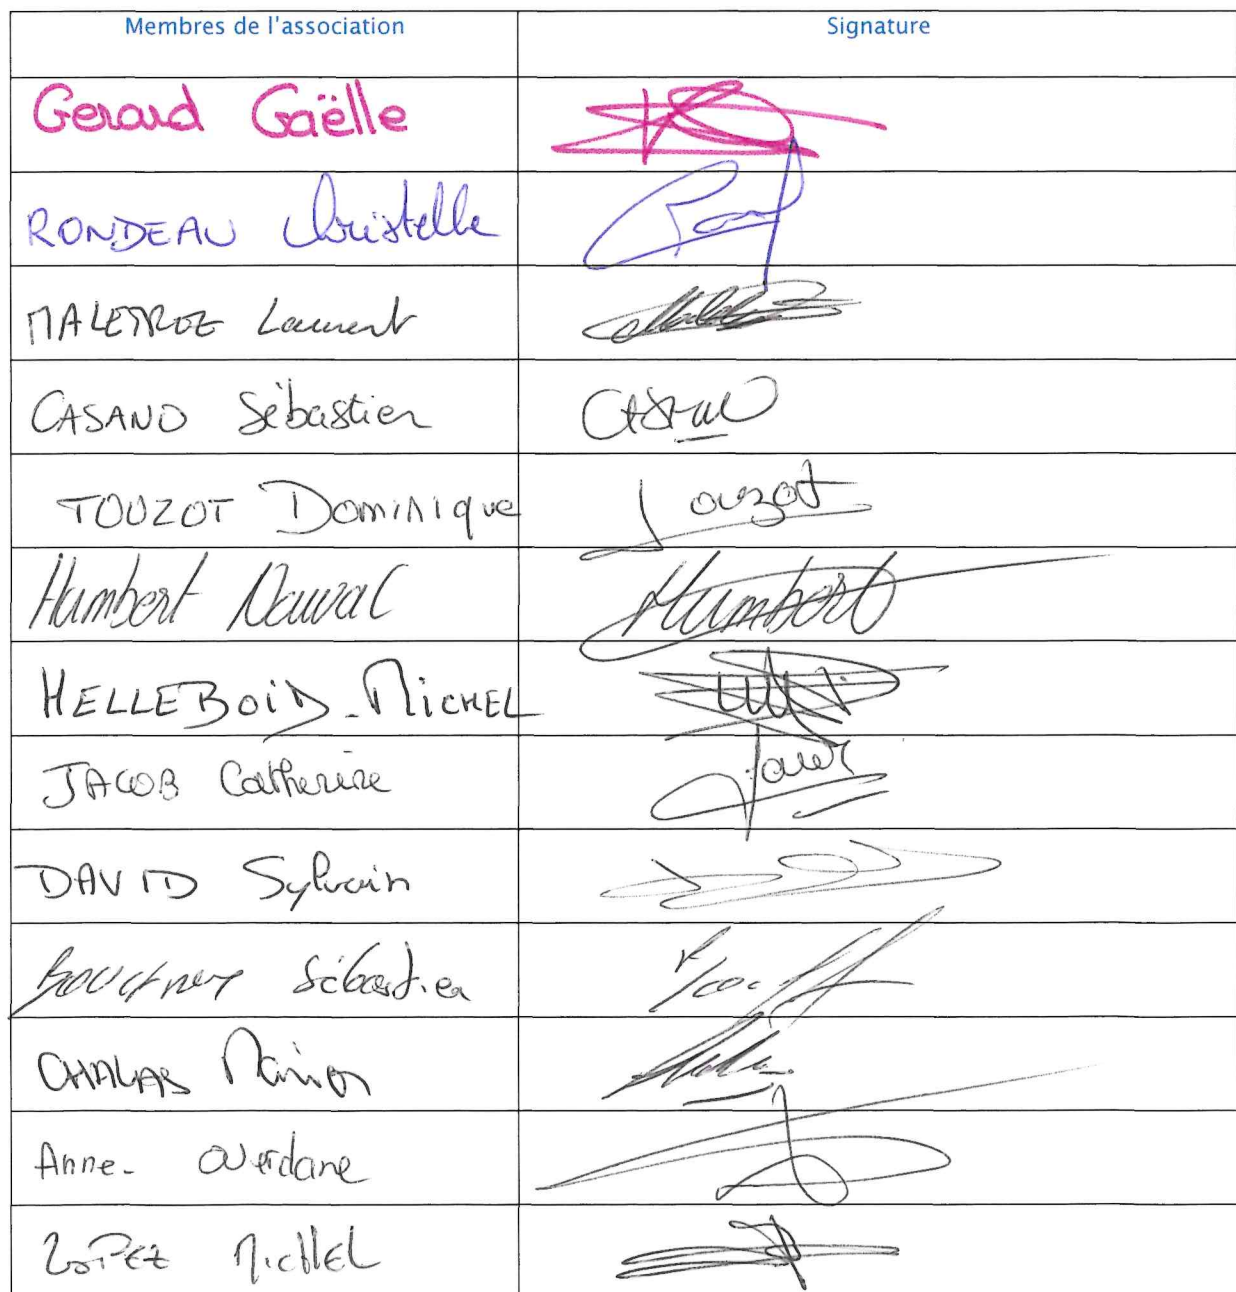 Membres de l'association Signature
Gerard Gaëlle
RONDEAU Christelle
MALETROZ Laurent
CASANO Sébastien CASANO
TOUZOT Dominique Touzot
Humbert Humbert
HELLEBOID - MICHEL
JACOB Catherine Jacob
DAVID Sylvain
Sébastien
CHALAS Marion
Anne - Overdane
LOPEZ MICHEL